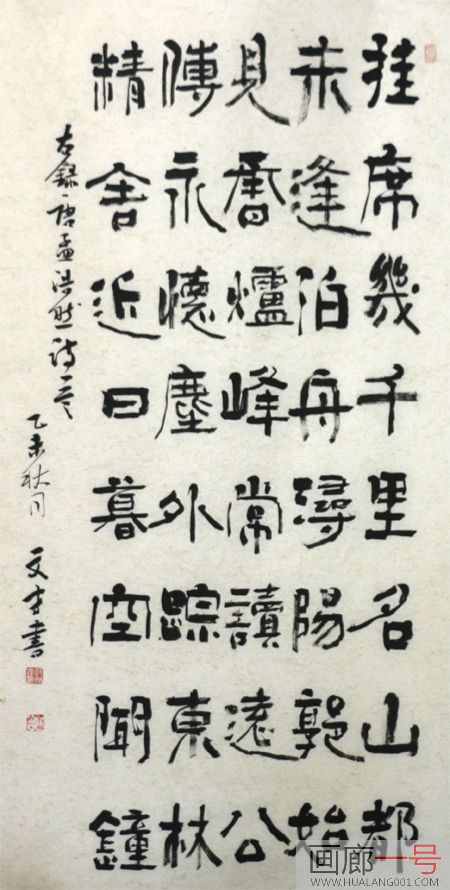 挂席幾千里名山都
未逢泊舟潯陽郭始
見香爐峰常讀遠公
傳永懷塵外踪東林
精舍近日暮空聞鐘
右錄唐孟浩然詩一首
乙未秋月 文才書
画廊一号
WWW.HUALANG001.COM